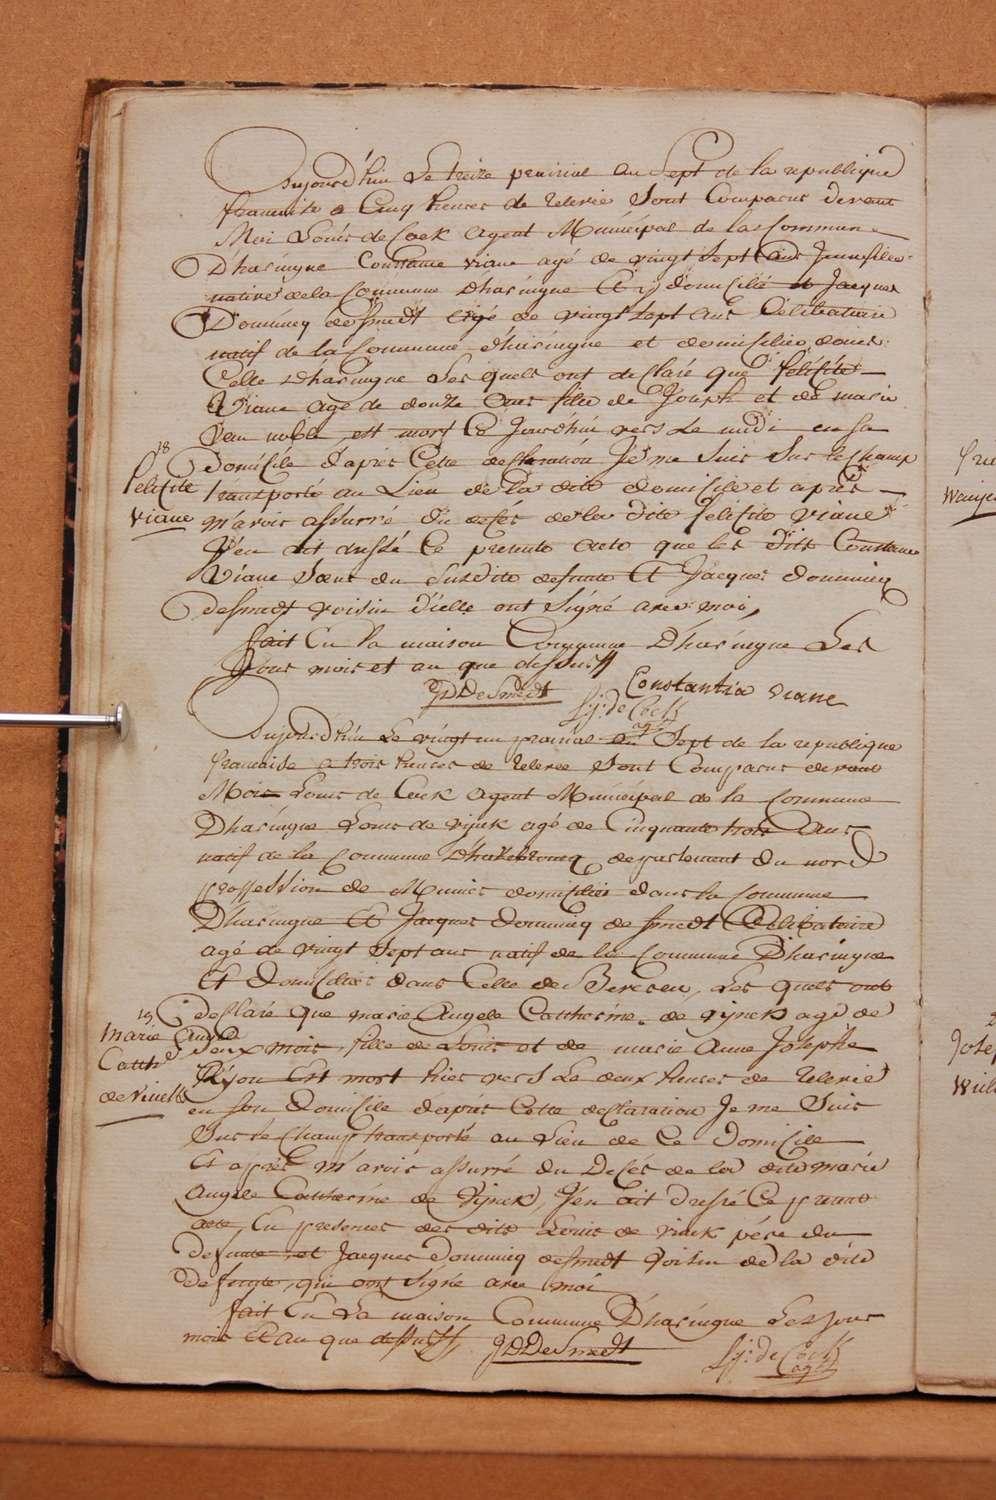 Aujourd'hui le treize prairial an Sept de la republique
francaise a Cinq heures de relevée Sont Comparus devant
Moi Louis de Cock agent Municipal de la Commune
D'haringue Constance viane agé de vingt Sept ans Jeunefille
native de la Commune D'haringue Et y domicilié et Jacques
Dominicq desmedt agé de vingt sept ans Celibataire
natif de la Commune d'haringue et domicilié dans
Celle Dharingue Lesquels ont desclaré que felisité
Viane agé de douze ans fille de Joseph et de marie
noble est mort Ce Jourdhui vers Le midi en sa
18
Domisile d'après Cette desclaration Je me Suis Sur le Champ
felisite
transporté au Lieu de la dite domisile et après
viane
m'avoir assurré du deces de la dite felisite viane
J'en ait dressé Ce presente acte que les dits Constance
Viane Soeur du Susdite defunte Et Jacques dominicq
desmedt voisin d'elle ont Signé avec moi,
fait En la maison Commune D'haringue Les
Jour mois et an que dessus
JDDeSmedt Constantia viane
L.J: de Cock
agt
Aujourd'hui Le vingt un prairial an Sept de la republique
francaise a trois heures de relevee Sont Comparus devant
Moi Louis de Cock agent Municipal de la Commune
Dharingue Louis de vijnck agé de Cinquante trois ans
natif de la Commune departement du nord
proffession de domicilié dans la Commune
D'haringue Et Jacques Dominicq de Smedt Celibataire
agé de vingt Sept ans natif de la Commune D'haringue
Et Domicilié dans Celle de Beveren, Lesquels ont
19
desclaré que marie Angele Catthérine de vijnck agé de
Marie Angele
deux mois fille de Louis et de marie Anne Josephe
Catthe
Est mort hier vers Le deux heures de Relevée
de vinck
en son Domisile d'après Cette desclaration Je me Suis
Sur le Champ transporté au Lieu de Ce Domisile
Et après m'avoir assurré du Decés de la dite marie
Angele Catthérine de Vijnck, J'en ait dressé Ce present
acte, En presences des dits Louis de vinck pére du
defunte et Jacques Dominicq desmedt voisin de la dite
defunte, qui ont signé avec moi
fait En La maison Commune D'haringue Les Jour
mois Et an que dessus JDDeSmedt L.J: de Cock
agt